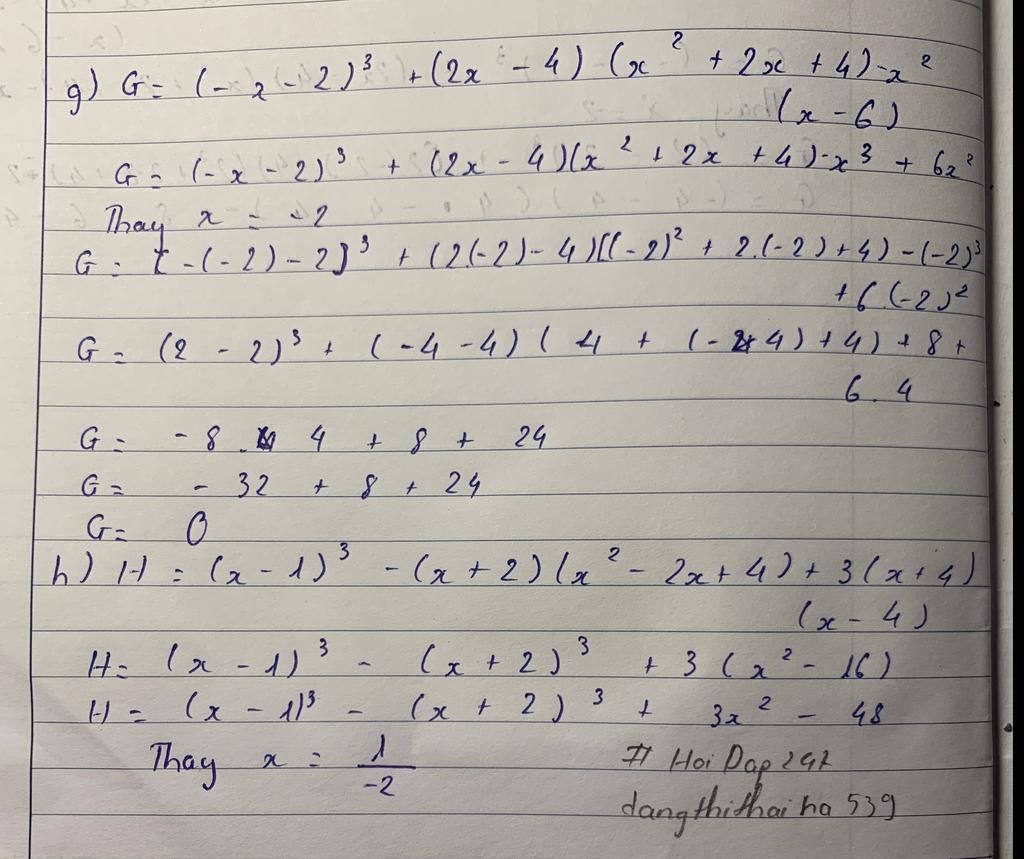 g) G = (-x-2)³ + (2x - 4) (x² + 2x + 4) - x²
(x - 6)
G = (-x - 2)³ + (2x - 4)(x² + 2x + 4) - x³ + 6x²
Thay x = -2
G = [-(-2) - 2]³ + (2(-2) - 4)[(-2)² + 2.(-2) + 4) - (-2)³
+ 6.(-2)²
G = (2 - 2)³ + (-4 - 4) ( 4 + (-4) + 4) + 8 +
6 . 4
G = - 8 . 4 + 8 + 24
G = - 32 + 8 + 24
G = 0
h) H = (x - 1)³ - (x + 2) (x² - 2x + 4) + 3(x + 4)
(x - 4)
H = (x - 1)³ - (x + 2)³ + 3 (x² - 16)
H = (x - 1)³ - (x + 2)³ + 3x² - 48
Thay x = 1/-2
# Hoi Dap 247
dangthithai ha 539